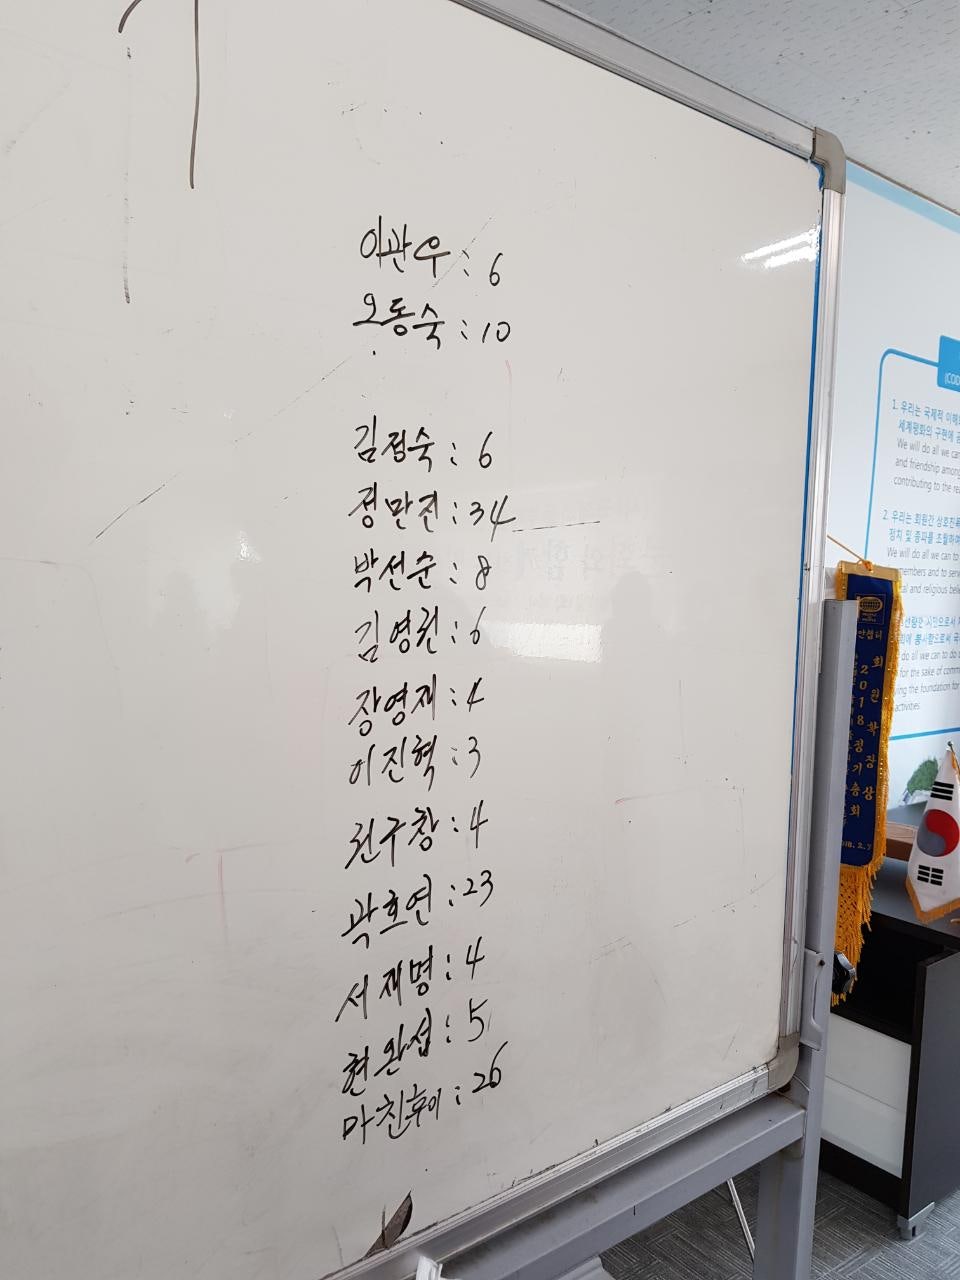 이관우 : 6
오동숙 : 10
김정숙 : 6
정만진 : 34
박선순 : 8
김영권 : 6
장영재 : 4
이진혁 : 3
권구창 : 4
곽호연 : 23
서재명 : 4
현완섭 : 5
마친후이 : 26
1. 우리는 국제적 이해
세계평화의 구현에
We will do all we can
and friendship among
contributing to the
2. 우리는 회원간 상호친목
정치 및 종파를 초월하여
We will do all we can to
members and to
and religious
시민으로서
봉사함으로써
do all we can to do
for the sake of
the foundation for
activities.
회원확장상
2018정기총회